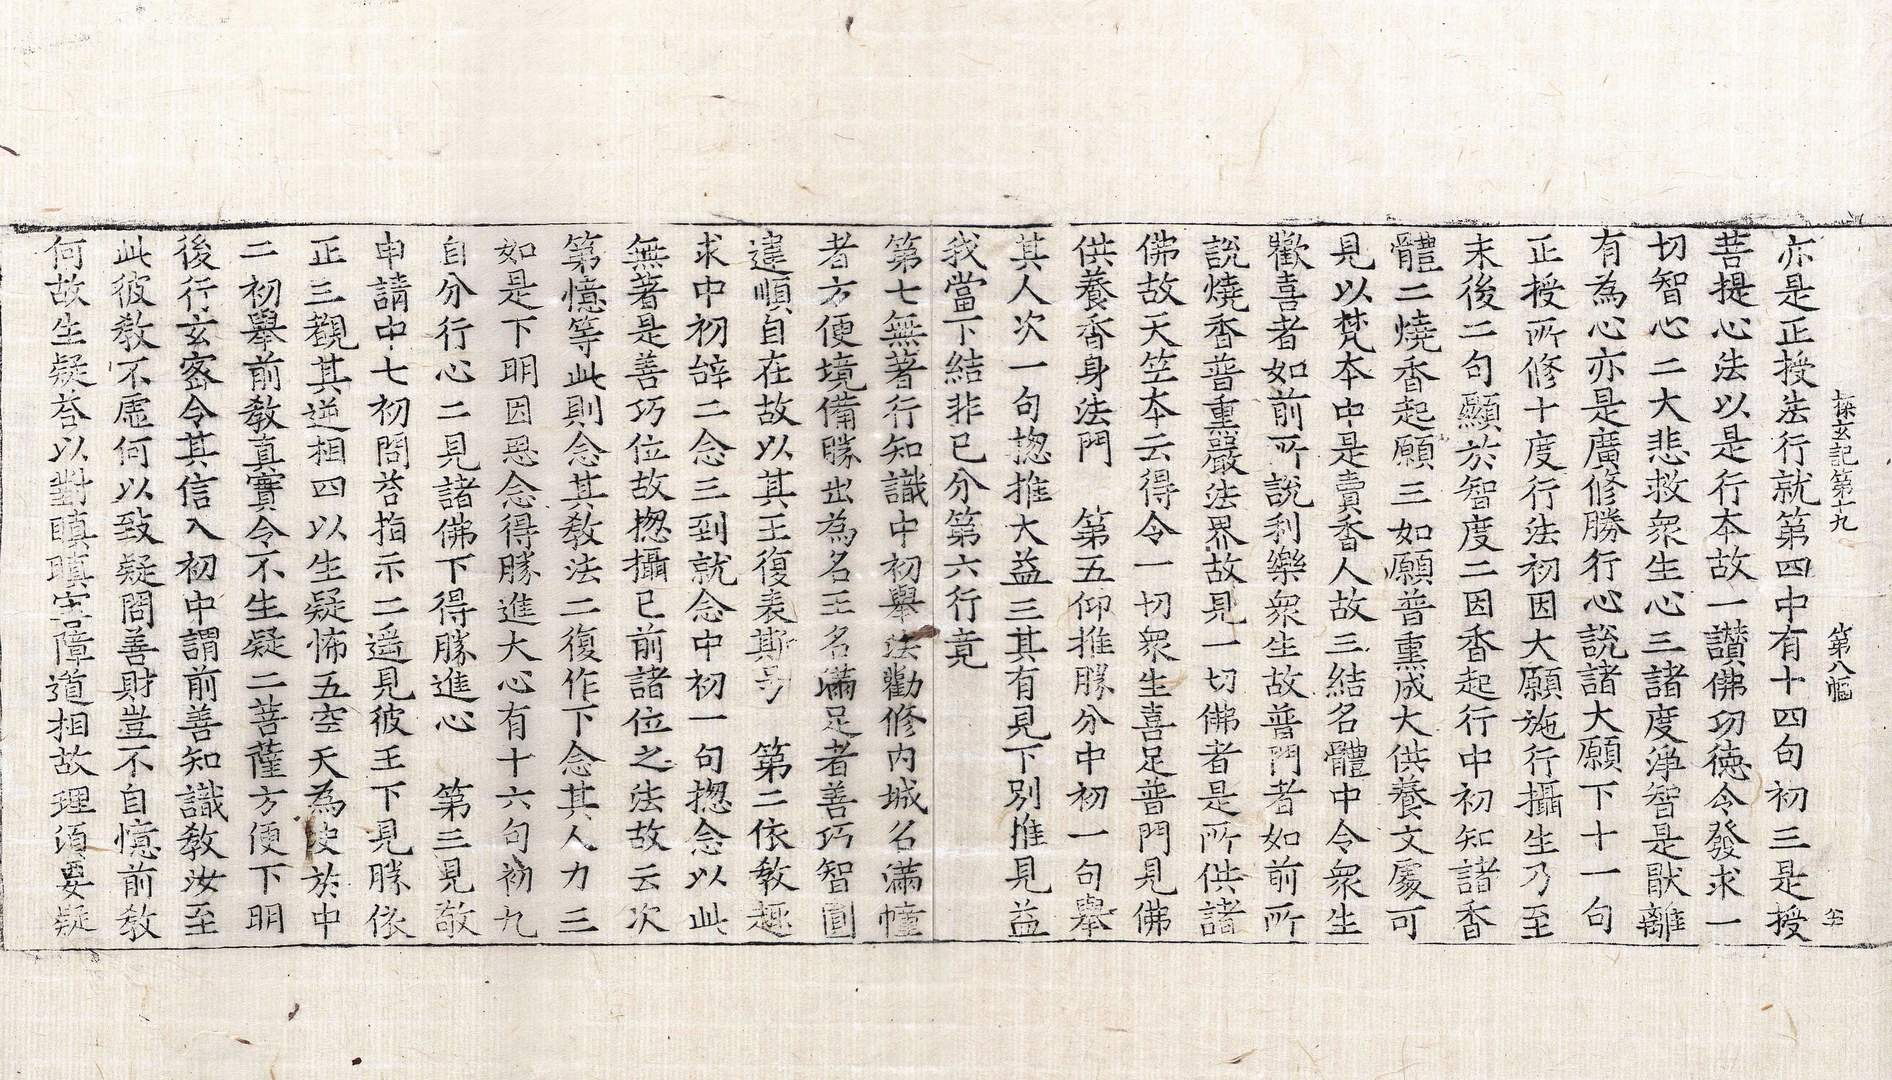 探玄記第十九 第八幅 全
亦是正授法行就第四中有十四句初三是授
菩提心法以是行本故一讃佛功德令發求一
切智心二大悲救衆生心三諸度淨智是猒離
有為心亦是廣修勝行心說諸大願下十一句
正授所修十度行法初因大願施行攝生乃至
末後二句顯於智度二因香起行中初知諸香
體二燒香起願三如願普熏成大供養文處可
見以梵本中是賣香人故三結名體中令衆生
歡喜者如前所說利樂衆生故普門者如前所
說燒香普熏嚴法界故見一切佛者是所供諸
佛故天竺本云得令一切衆生喜足普門見佛
供養香身法門 第五仰推勝分中初一句舉
其人次一句揔推大益三其有見下別推見益
我當下結非已分第六行竟
第七無著行知識中初舉法勸修內城名滿幢
者方便境備勝出為名王名滿足者善巧智圓
違順自在故以其王復表斯号 第二依教趣
求中初辝二念三到就念中初一句揔念以此
無著是善巧位故揔攝已前諸位之法故云次
第憶等此則念其教法二復作下念其人力三
如是下明因思念得勝進大心有十六句初九
自分行心二見諸佛下得勝進心 第三見敬
申請中七初問荅指示二遥見彼王下見勝依
正三觀其逆相四以生疑怖五空天為史於中
二初舉前教真實令不生疑二菩薩方便下明
後行玄密令其信入初中謂前善知識教汝至
此彼教不虛何以致疑問善財豈不自憶前教
何故生疑荅以對瞋瞋害障道相故理須要疑